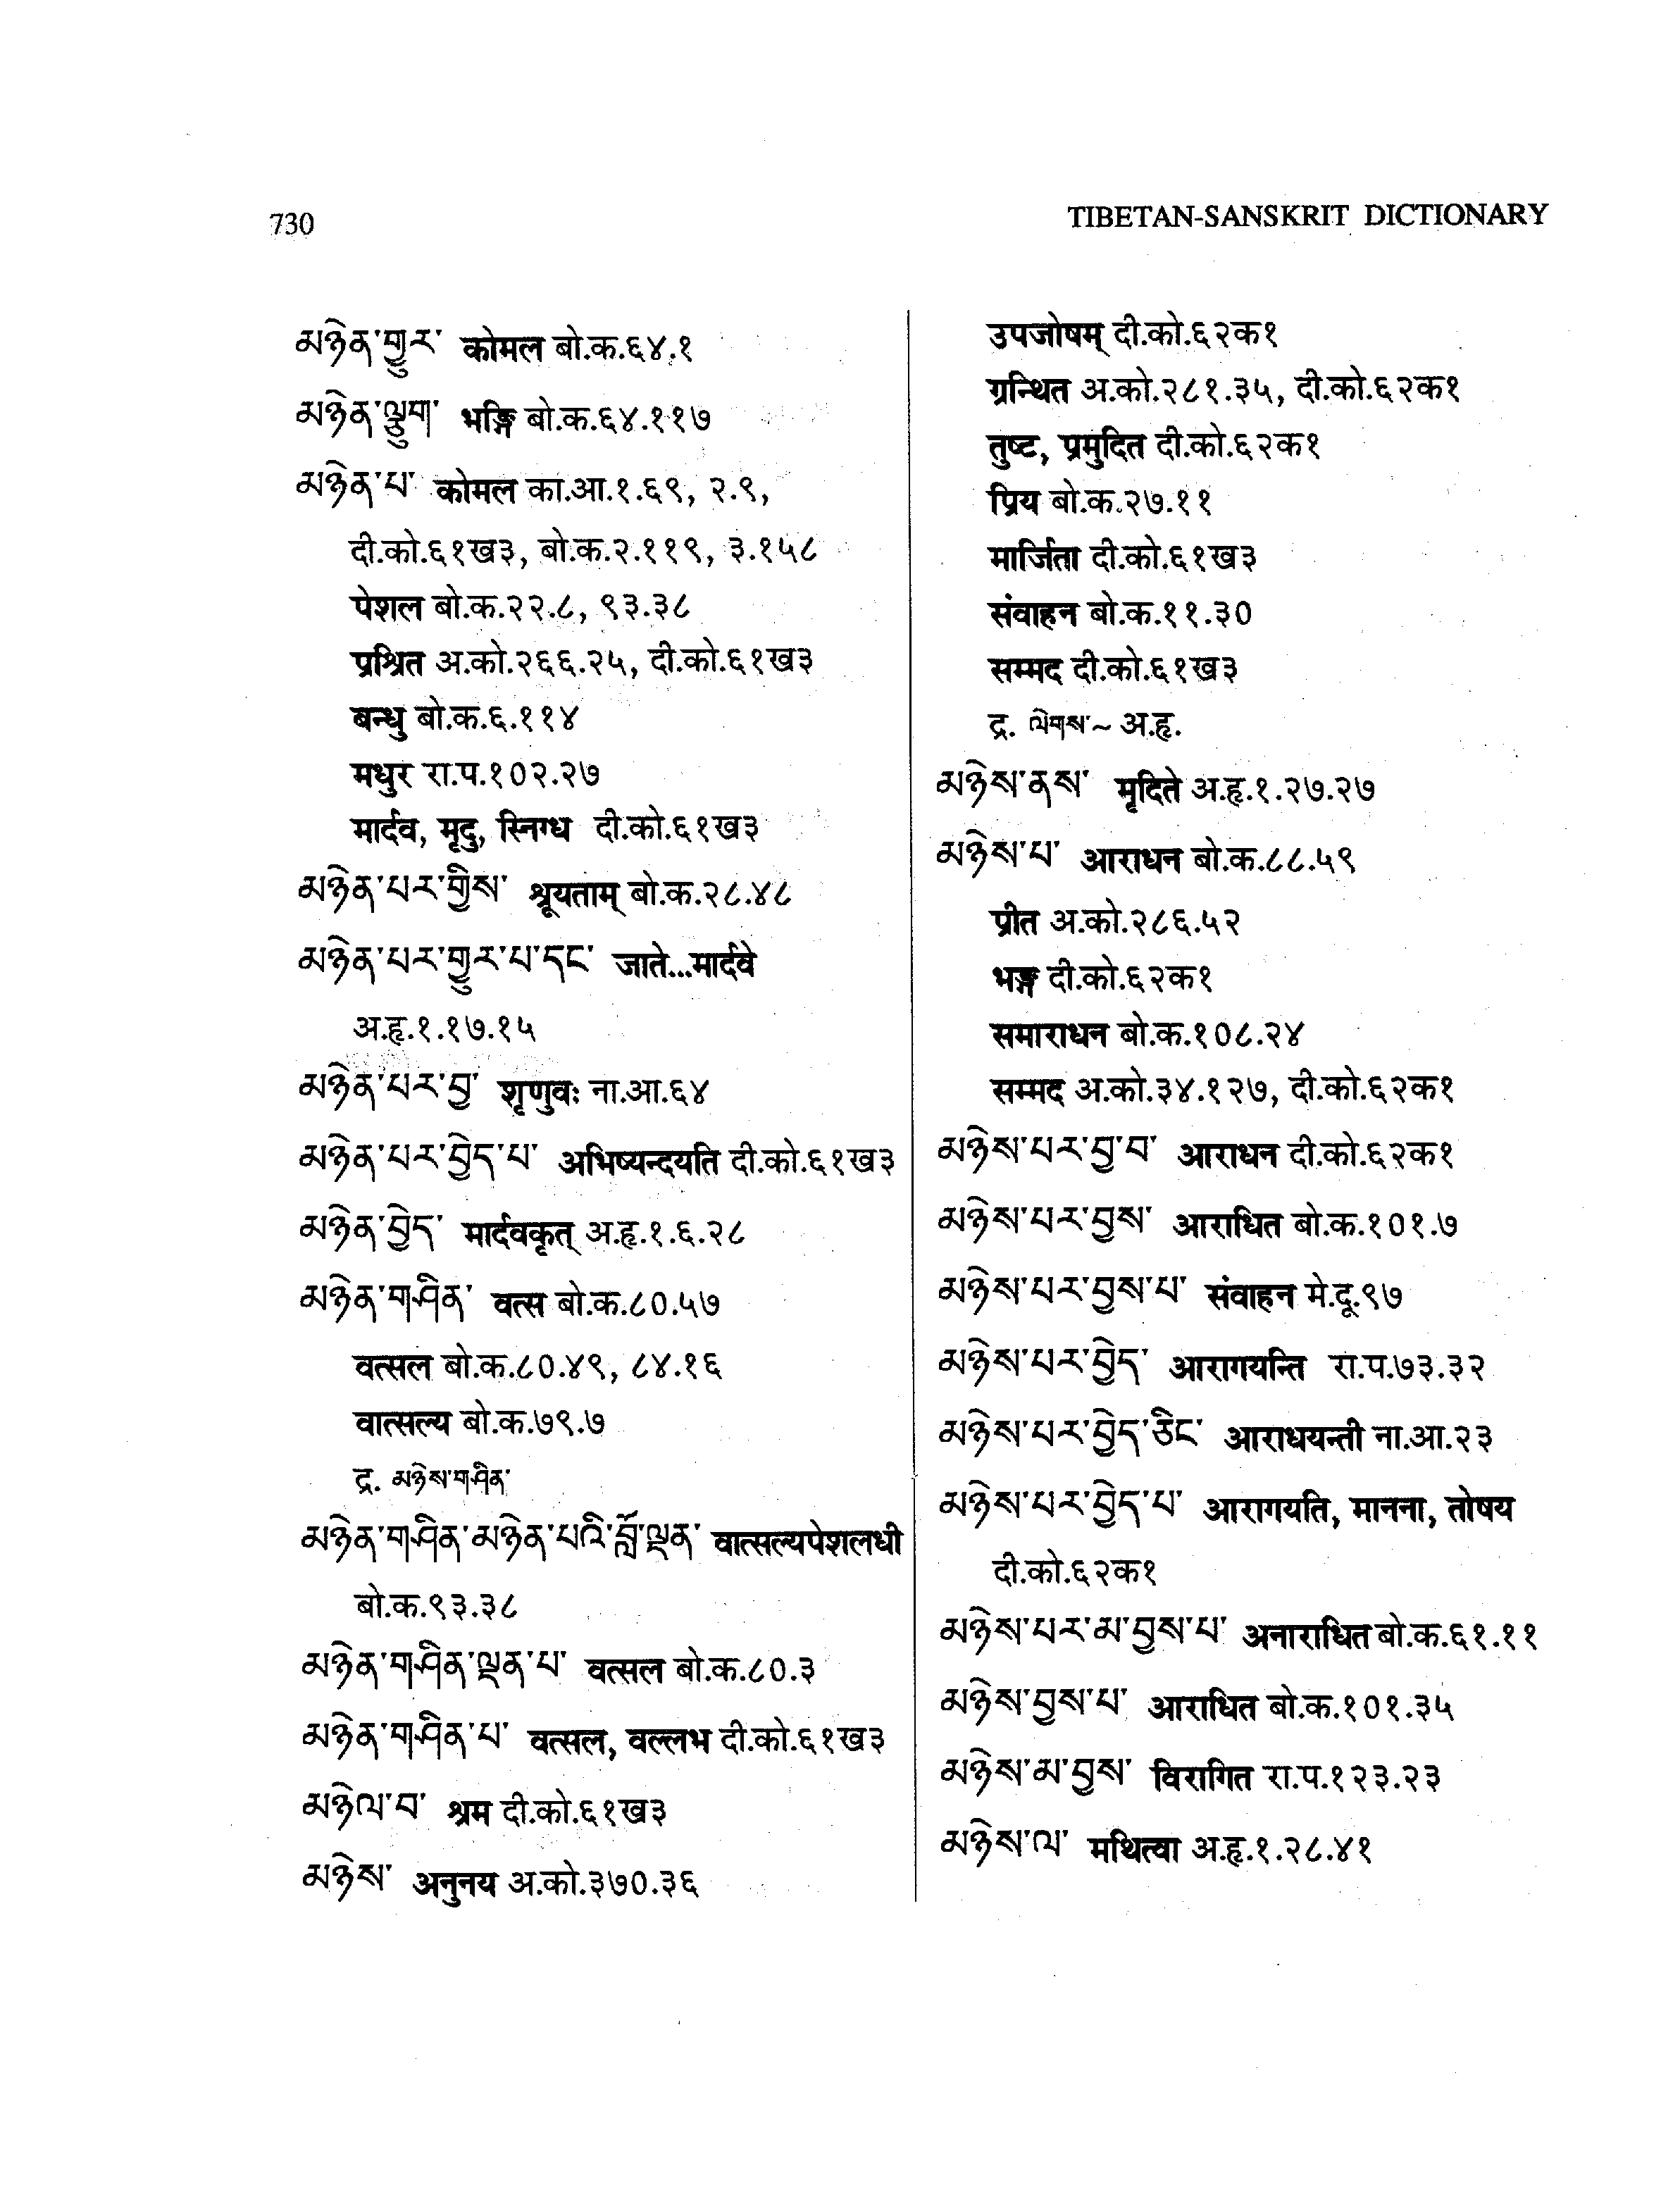 730
TIBETAN-SANSKRIT DICTIONARY
མཉེན་གྱུར་ कोमल बो.क.६४.१
མཉེན་ལྕུག་ भङ्गि बो.क.६४.११७
མཉེན་པ་ कोमल का.आ.१.६९, २.९,
दी.को.६१ख३, बो.क.२.११९, ३.१५८
पेशल बो.क.२२.८, ९३.३८
प्रश्रित अ.को.२६६.२५, दी.को.६१ख३
बन्धु बो.क.६.११४
मधुर रा.प.१०२.२७
मार्दव, मृदु, स्निग्ध दी.को.६१ख३
མཉེན་པར་གྱིས་ श्रूयताम् बो.क.२८.४८
མཉེན་པར་གྱུར་པ་དང་ जाते...मार्दवे
अ.हृ.१.१७.१५
མཉེན་པར་བྱ་ शृणुवः ना.आ.६४
མཉེན་པར་བྱེད་པ་ अभिष्यन्दयति दी.को.६१ख३
མཉེན་བྱེད་ मार्दवकृत् अ.हृ.१.६.२८
མཉེན་གཤིན་ वत्स बो.क.८०.५७
वत्सल बो.क.८०.४९, ८४.१६
वात्सल्य बो.क.७९.७
द्र. མཉེས་གཤིན་
མཉེན་གཤིན་མཉེན་པའི་བློ་ལྡན་ वात्सल्यपेशलधी
बो.क.९३.३८
མཉེན་གཤིན་ལྡན་པ་ वत्सल बो.क.८०.३
མཉེན་གཤིན་པ་ वत्सल, वल्लभ दी.को.६१ख३
མཉེལ་བ་ श्रम दी.को.६१ख३
མཉེས་ अनुनय अ.को.३७०.३६
उपजोषम् दी.को.६२क१
ग्रन्थित अ.को.२८१.३५, दी.को.६२क१
तुष्ट, प्रमुदित दी.को.६२क१
प्रिय बो.क.२७.११
मार्जिता दी.को.६१ख३
संवाहन बो.क.११.३०
सम्मद दी.को.६१ख३
द्र. ལེགས་~ अ.हृ.
མཉེས་ནས་ मृदिते अ.हृ.१.२७.२७
མཉེས་པ་ आराधन बो.क.८८.५९
प्रीत अ.को.२८६.५२
भङ्ग दी.को.६२क१
समाराधन बो.क.१०८.२४
सम्मद अ.को.३४.१२७, दी.को.६२क१
མཉེས་པར་བྱ་བ་ आराधन दी.को.६२क१
མཉེས་པར་བྱས་ आराधित बो.क.१०१.७
མཉེས་པར་བྱས་པ་ संवाहन मे.दू.९७
མཉེས་པར་བྱེད་ आरागयन्ति रा.प.७३.३२
མཉེས་པར་བྱེད་ཅིང་ आराधयन्ती ना.आ.२३
མཉེས་པར་བྱེད་པ་ आरागयति, मानना, तोषय
दी.को.६२क१
མཉེས་པར་མ་བྱས་པ་ अनाराधित बो.क.६१.११
མཉེས་བྱས་པ་ आराधित बो.क.१०१.३५
མཉེས་མ་བྱས་ विरागित रा.प.१२३.२३
མཉེས་ལ་ मथित्वा अ.हृ.१.२८.४१